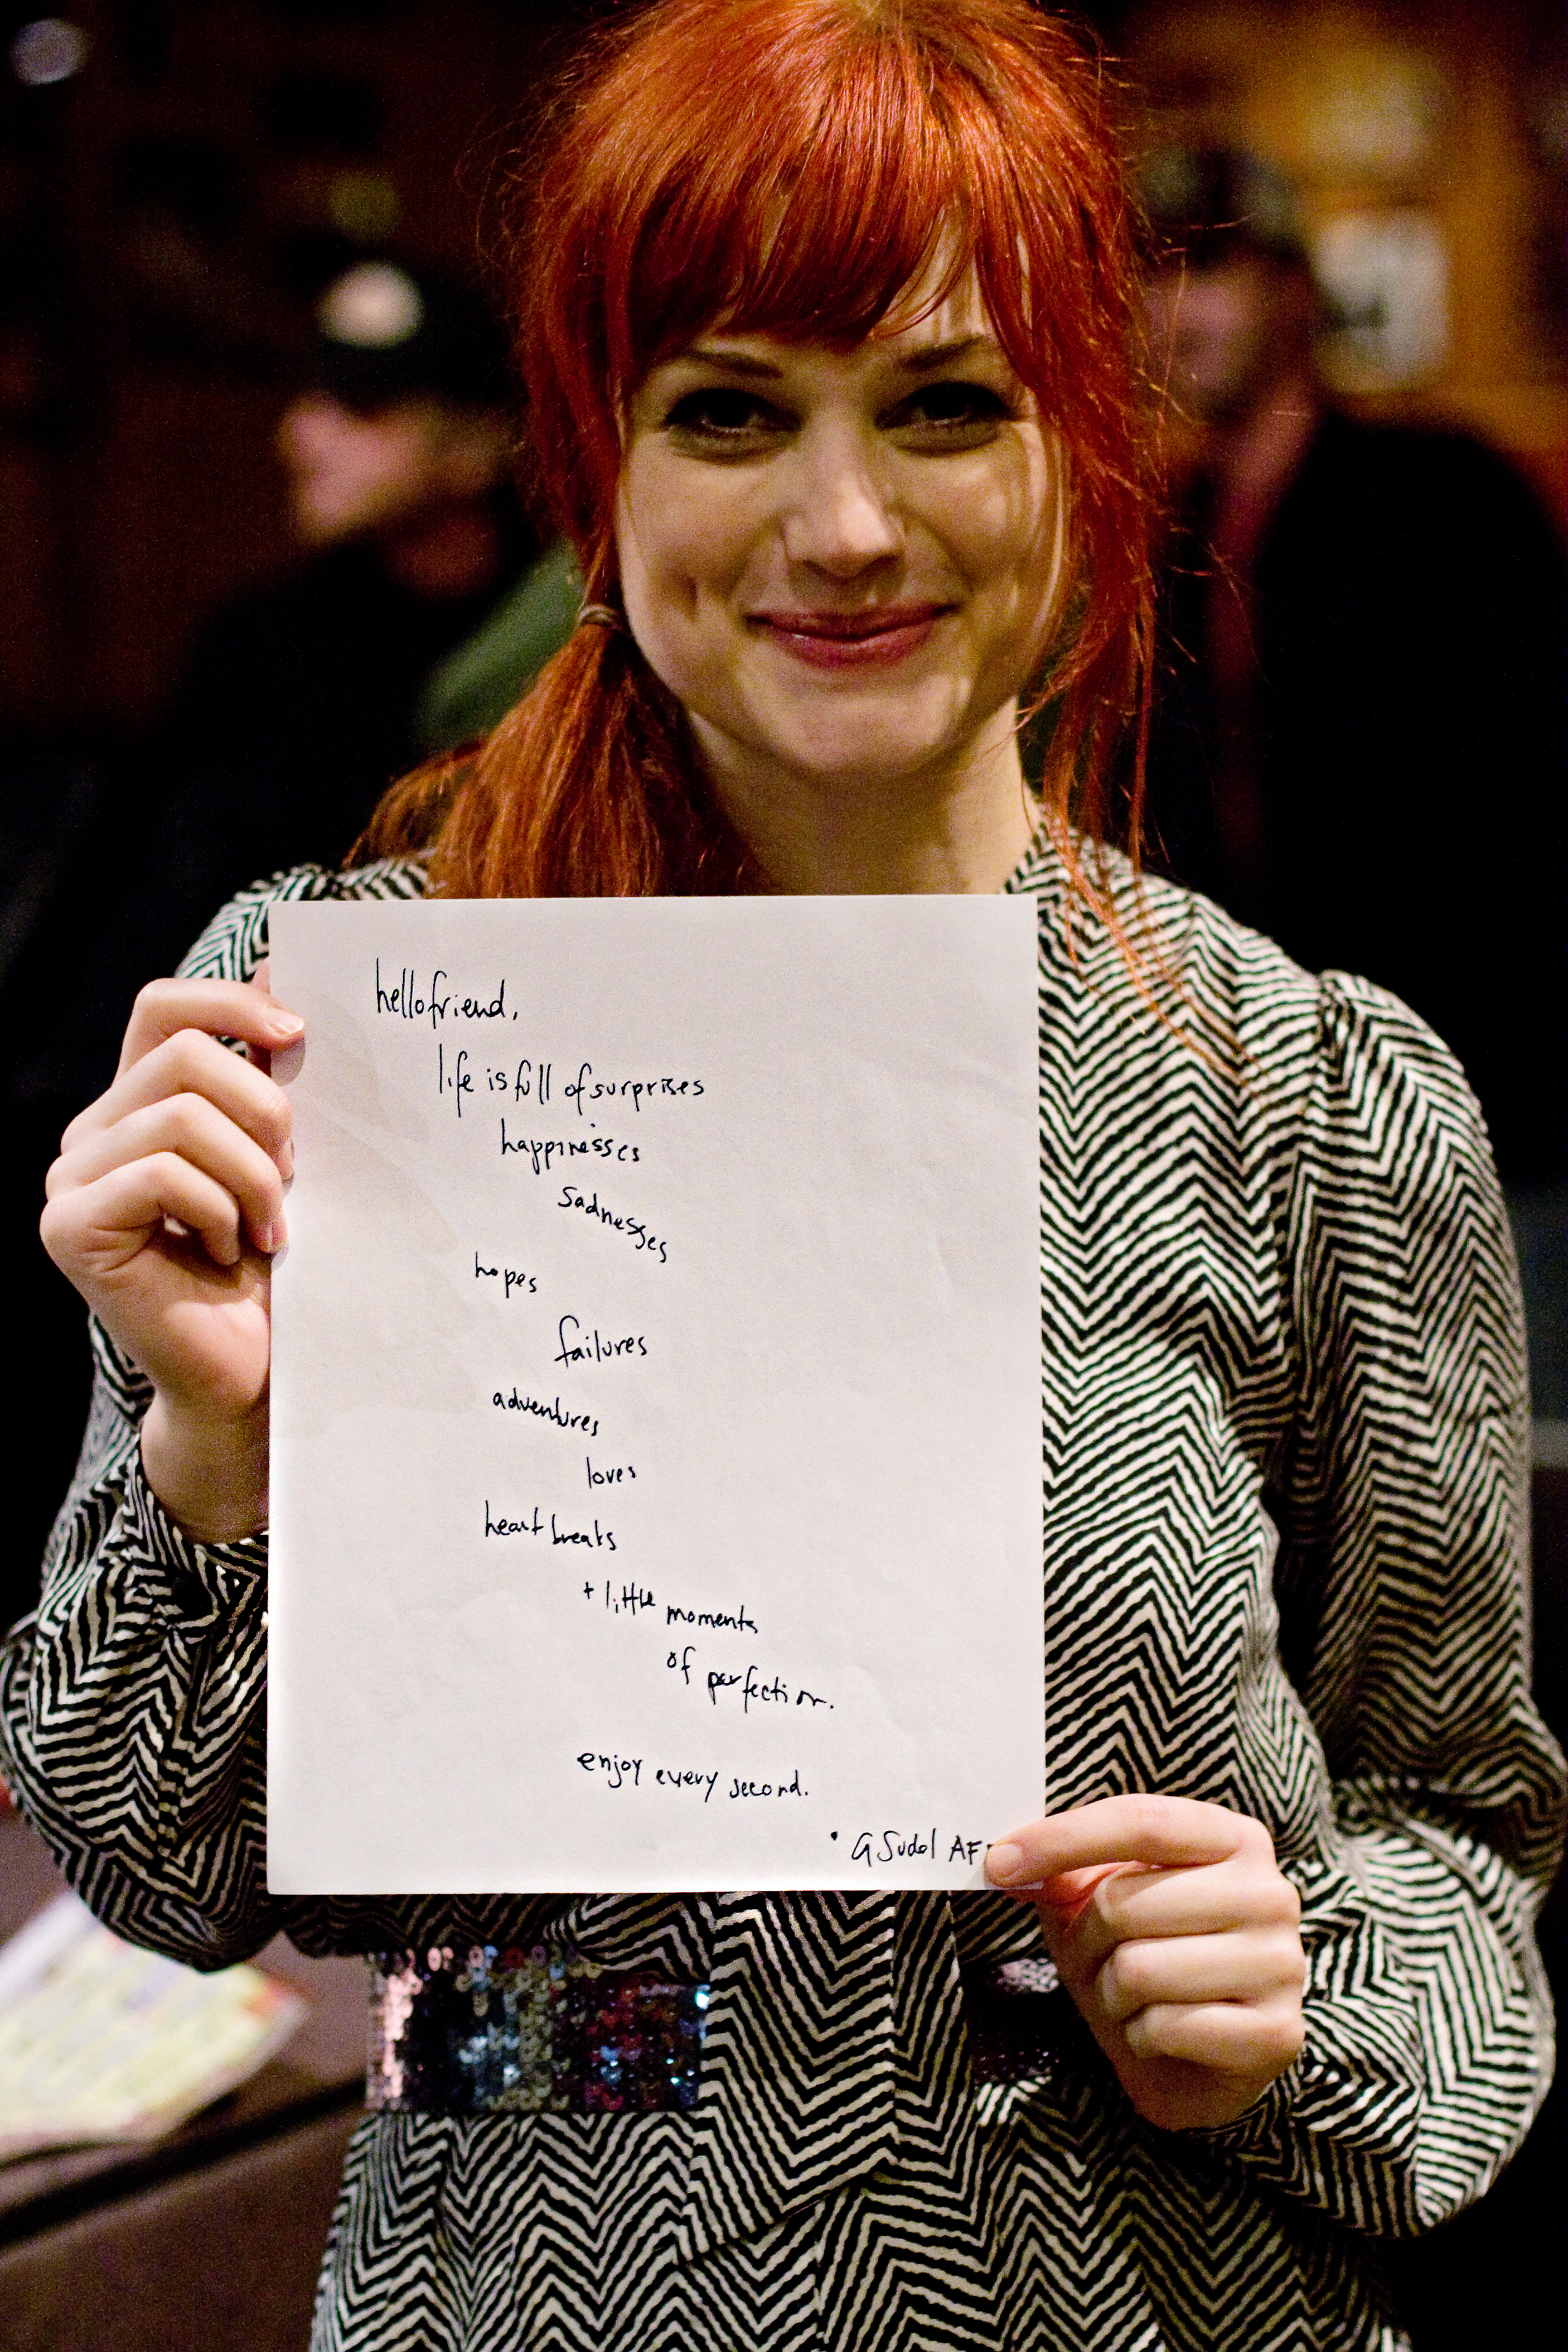 hello friend,
life is full of surprises
happinesses
sadnesses
hopes
failures
adventures
loves
heart breaks
+ little moments
of perfection.
enjoy every second.
• A Sudol AF